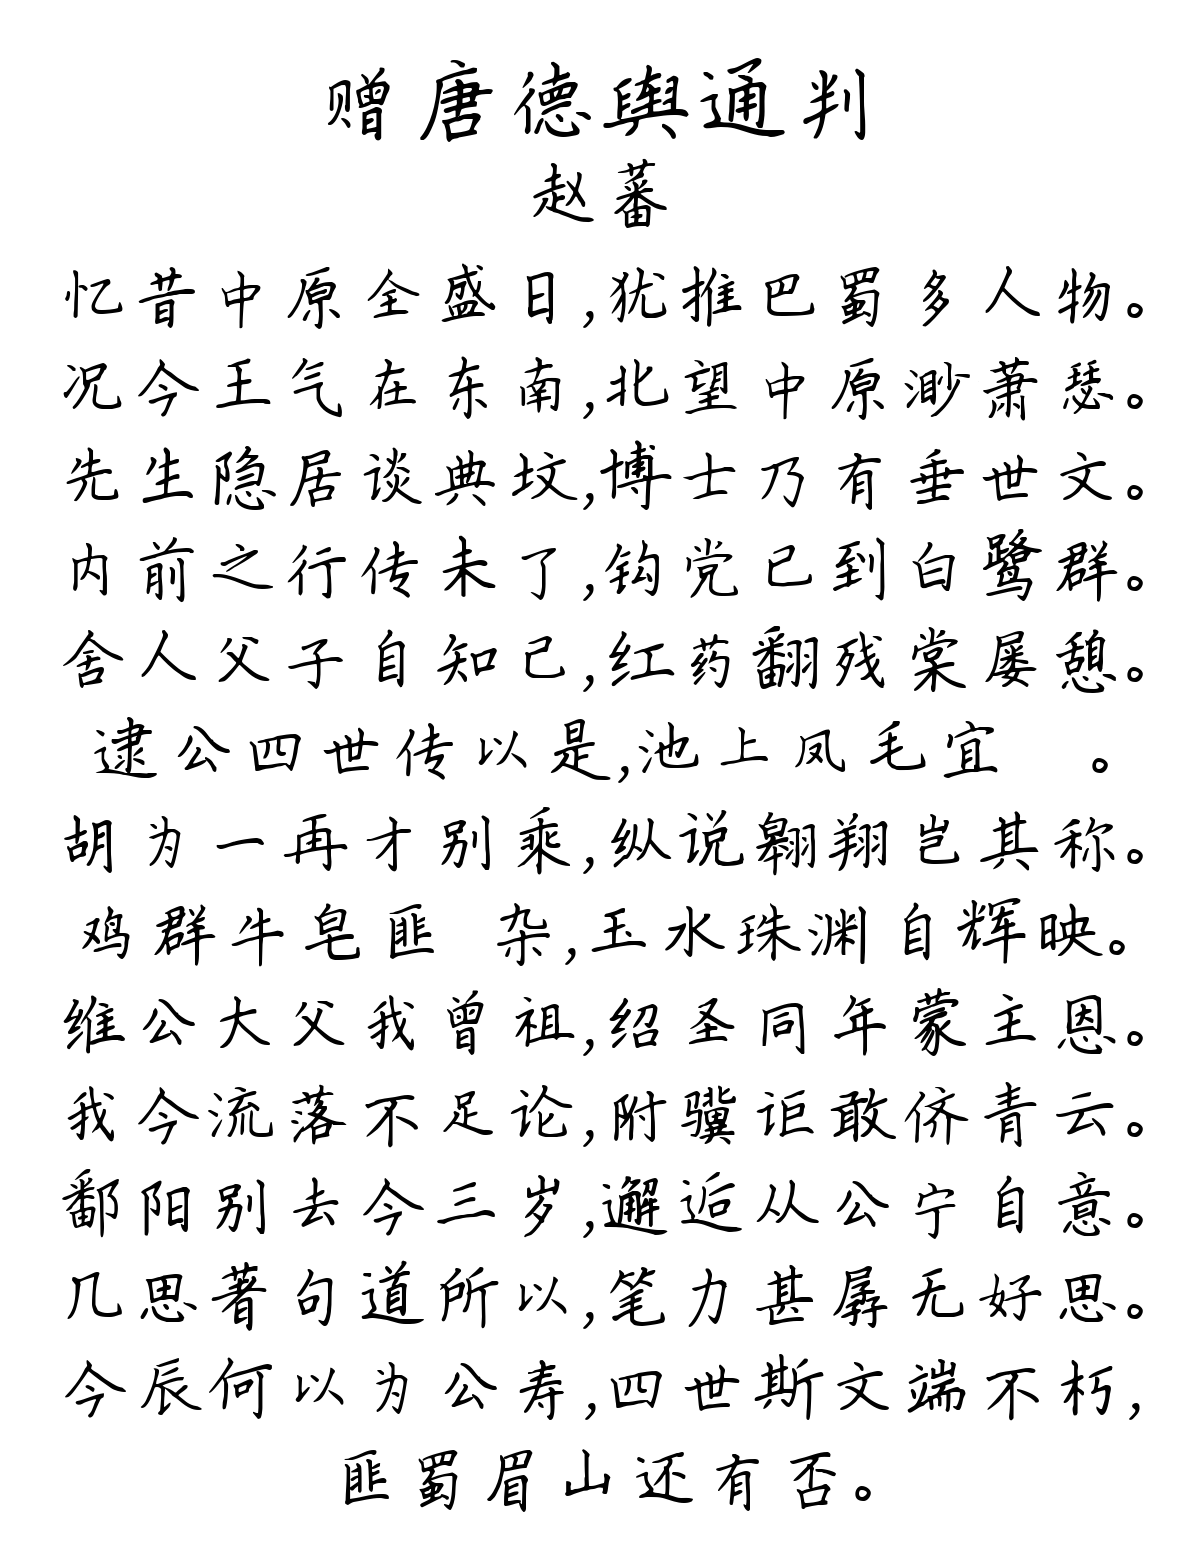 赠唐德舆通判
赵蕃
忆昔中原全盛日,犹推巴蜀多人物。
况今王气在东南,北望中原渺萧瑟。
先生隐居谈典坟,博士乃有垂世文。
内前之行传未了,钩党已到白鹭群。
舍人父子自知己,红药翻残棠屡憩。
逮公四世传以是,池上凤毛宜 。
胡为一再才别乘,纵说翱翔岂其称。
鸡群牛皂匪 杂,玉水珠渊自辉映。
维公大父我曾祖,绍圣同年蒙主恩。
我今流落不足论,附骥讵敢侪青云。
鄱阳别去今三岁,邂逅从公宁自意。
几思著句道所以,笔力甚孱无好思。
今辰何以为公寿,四世斯文端不朽,
匪蜀眉山还有否。